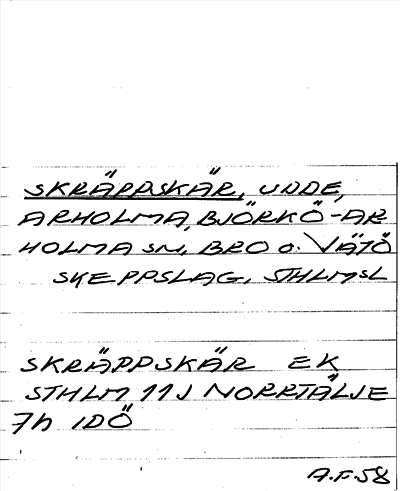 SKRÄPPSKÄR, UNDE,
ARHOLMA, BJÖRKÖ-AR
HOLMA SN, BRO O. VÄTÖ
SKEPPSLAG, STHLMSL
SKRÄPPSKÄR EK
STHLM 11J NORRTÄLJE
7h IDÖ
A.F.58